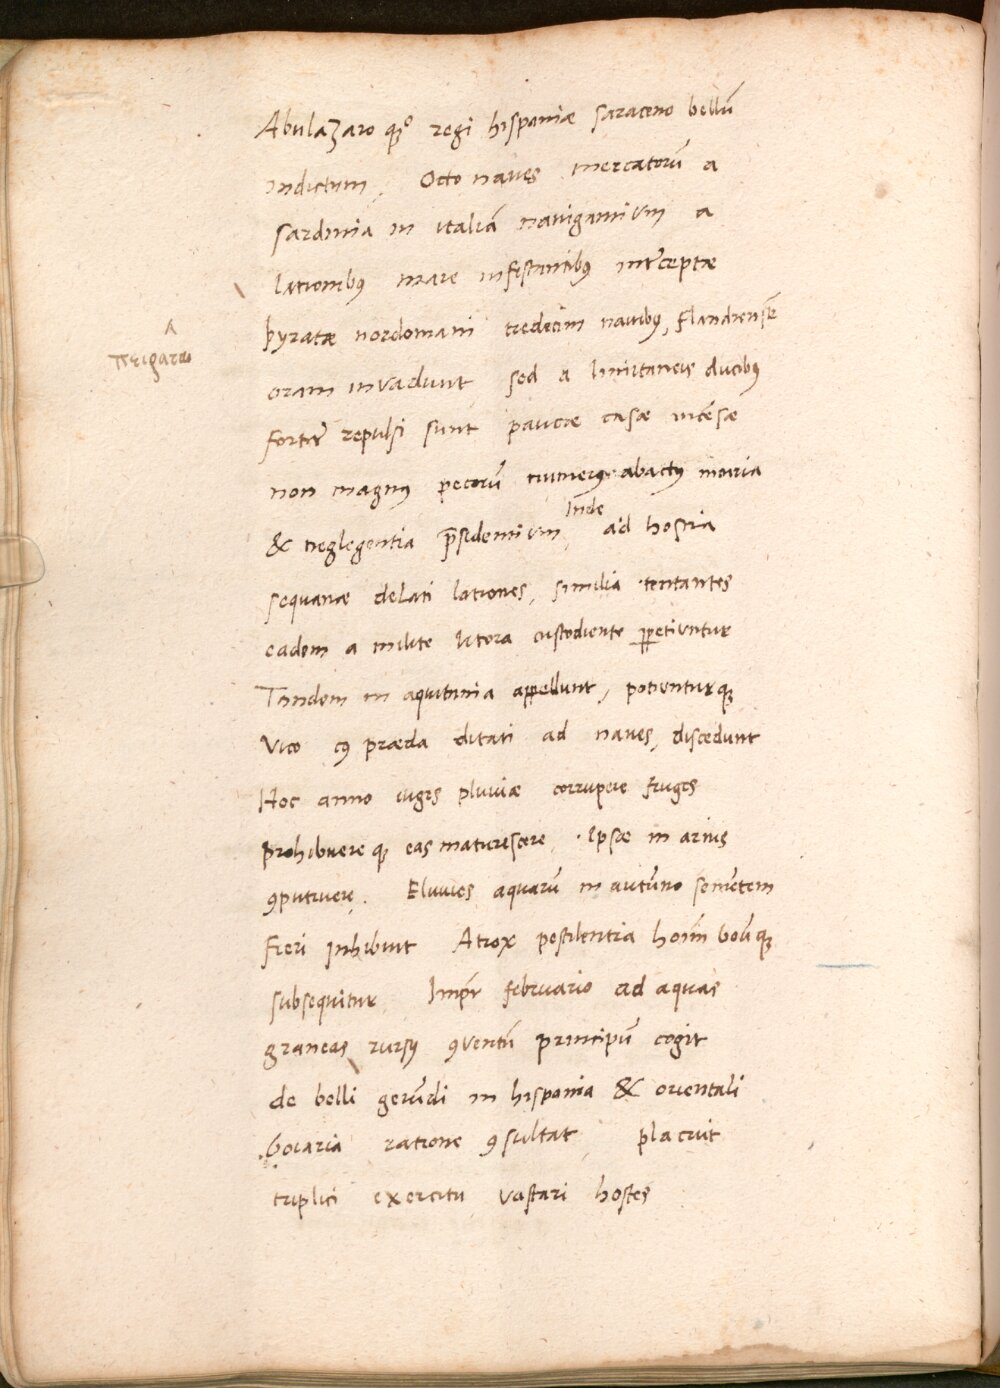 Abulazaro qꝫ° regi hispaniæ saraceno bellū
indictum, Octo naues mercatorū a
sardinia in italiā nauigantium a
latronibꝰ mare infestantibꝰ intꝰceptæ
pyratæ nordomani tredecim nauibꝰ, flandrensē
πειραται
oram invadunt sed a limitaneis ducibꝰ
fortiꝰ repulsi sunt paucæ casæ incēsæ
non magnꝰ pecorū numerꝰ abactꝰ incuria
& neglegentia p̄sidentium, Inde ad hostia
sequanæ delati latrones, similia tentantes
eadem a milite litora custodiente ꝑpetiuntur
Tandem in aquitania appellunt, potiunturqꝫ
Vico cꝰ præda ditati ad naues, discedunt
Hoc anno iuges pluuiæ corrupere fruges
prohibuere qꝫ eas maturescere, Ipsæ in aruis
ꝯputruere. Eluuies aquarū in autūno semētem
fieri inhibuit Atrox pestilentia hoīm boūqꝫ
subsequitur, Imꝑr februario ad aquas
graneas rursꝰ ꝯuentū principū cogit
de belli gerūdi in hispania & orientali
boiaria ratione ꝯsultat, placuit
triplici exercitu vastari hostes